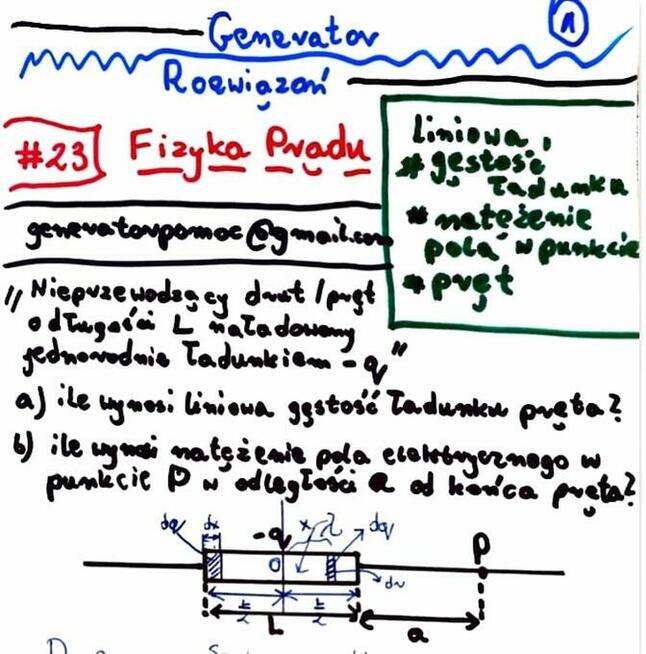 Generator
1
Rozwiązań
#23 Fizyka Prądu
liniowa
* gęstość
ładunku
* natężenie
pola w punkcie
* pręt
generatorpomoc@gmail.com
"Nieprzewodzący drut/pręt
o długości L naładowany
jednorodnie ładunkiem -q"
a) ile wynosi liniowa gęstość ładunku pręta?
b) ile wynosi natężenie pola elektrycznego w
punkcie P w odległości a od końca pręta?
dq dx -q x λ dq P
0 dx
L/2 L/2
L a